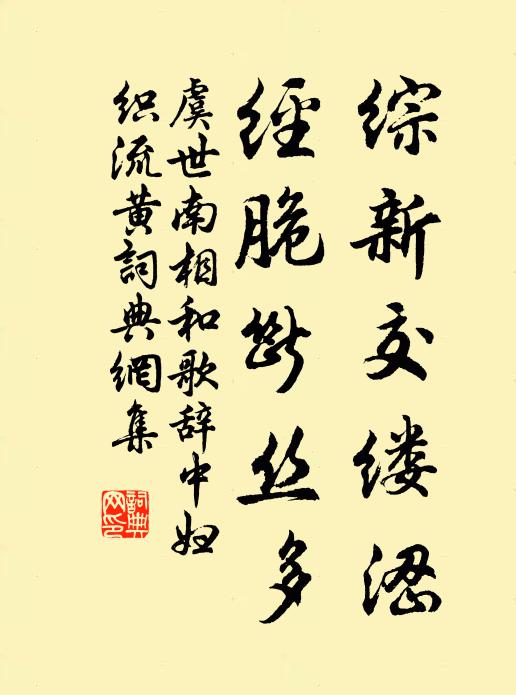 综新交缕涩
經脆斷丝多
虞世南相和歌辞中妇
织流黄詞典網集
詞典
网印